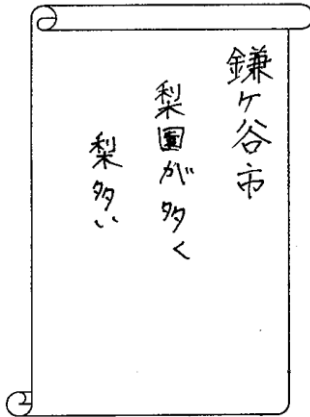 鎌ケ谷市
梨園が多く
梨多い